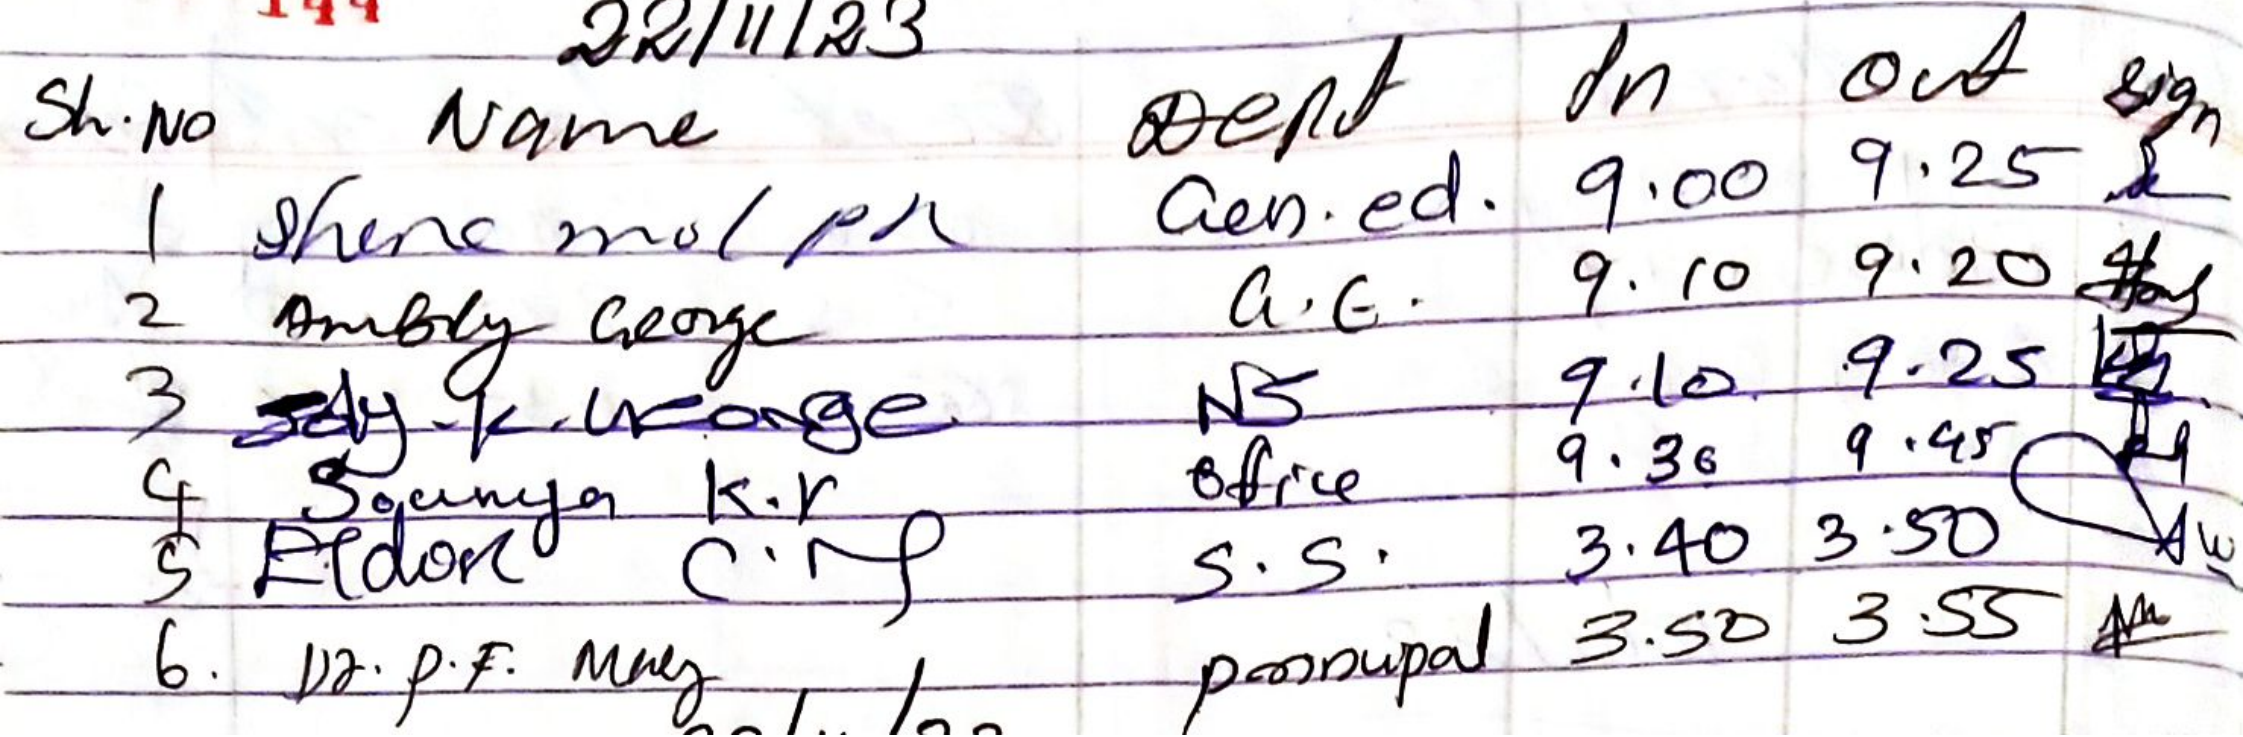 144
22/11/23
Sh.No Name Dept In Out Sign
1 Shene mol Gen.ed. 9.00 9.25
2 Ambily George G.E. 9.10 9.20
3 K. George NS 9.10 9.25
4 Soumya K.V office 9.30 9.45
5 Eldose C.M S.S. 3.40 3.50
6. Dr. P.F. Mary 3.50 3.55